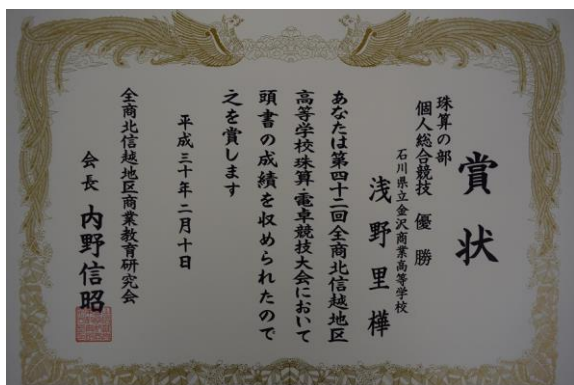 賞状
珠算の部
個人総合競技 優勝
石川県立金沢商業高等学校
浅野里樺
あなたは第四十二回全商北信越地区
高等学校珠算・電卓競技大会において
頭書の成績を収められたので
之を賞します
平成三十年二月十日
全商北信越地区商業教育研究会
会長 内野信昭